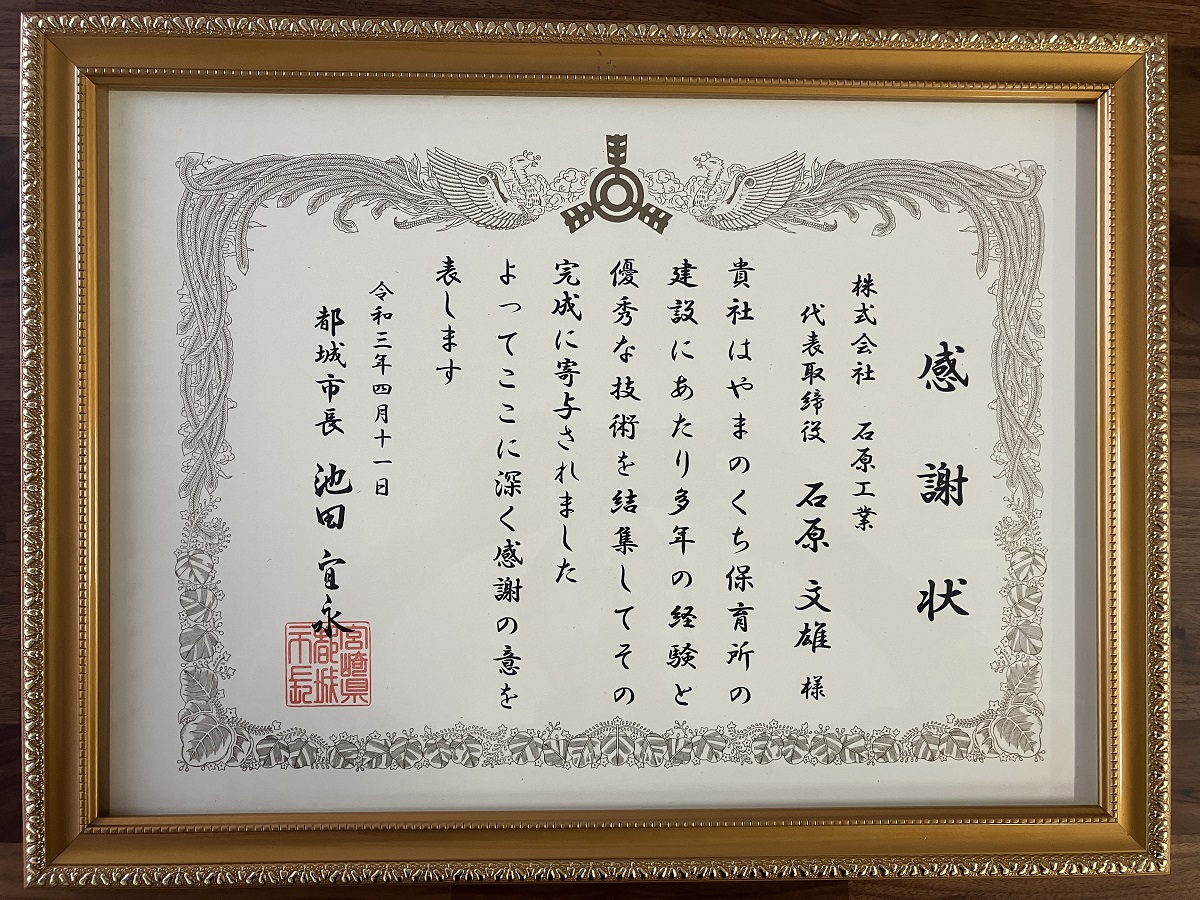 感謝状
株式会社 石原工業
代表取締役 石原 文雄 様
貴社はやまのくち保育所の
建設にあたり多年の経験と
優秀な技術を結集してその
完成に寄与されました
よってここに深く感謝の意を
表します
令和三年四月十一日
都城市長 池田 宜永
宮崎県
都城
市長